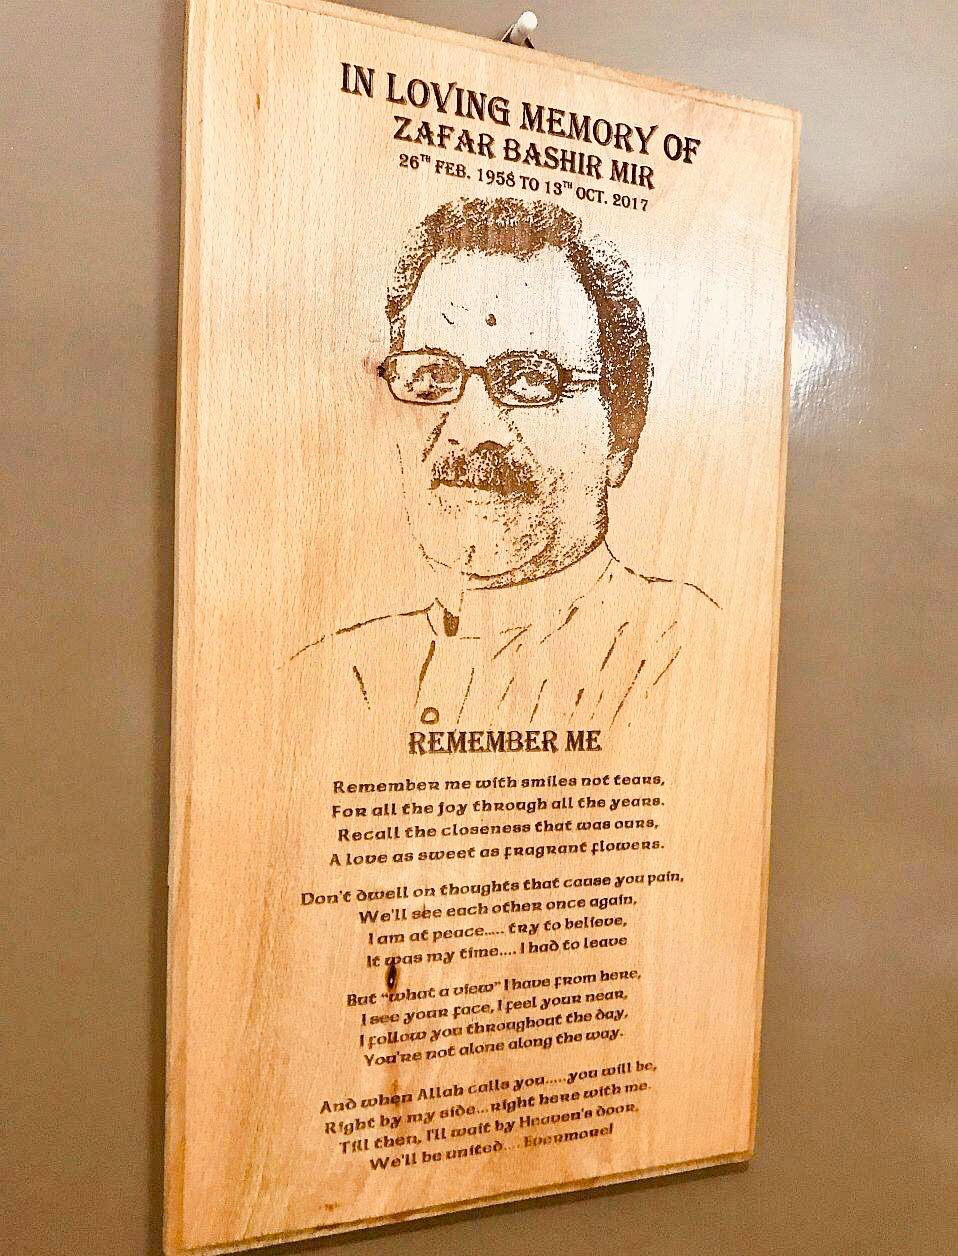 IN LOVING MEMORY OF
ZAFAR BASHIR MIR
26TH FEB. 1958 TO 13TH OCT. 2017
REMEMBER ME
Remember me with smiles not tears,
For all the joy through all the years.
Recall the closeness that was ours,
A love as sweet as fragrant flowers.
Don't dwell on thoughts that cause you pain,
We'll see each other once again,
I am at peace..... try to believe,
It was my time.... I had to leave
But "what a view" I have from here,
I see your face, I feel your near,
I follow you throughout the day,
You're not alone along the way.
And when Allah calls you.....you will be,
Right by my side...right here with me.
Till then, I'll wait by Heaven's door,
We'll be united.... Evermore!